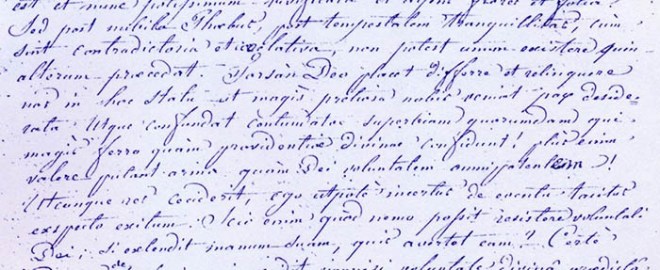 est et nunc
Sed post nubila Phœbus, post tempestatem tranquillitas, cùm
sint contradictoria et correlativa, non potest unum existere quin
alterum præcedat. Forsàn Deo placet differre et relinquere
nos in hoc statu ut magis pretiosa nobis veniat pax deside-
rata utque confundat contumatae superbiam quorumdam qui
magis ferro quàm providentiæ divinæ confidunt! plus enim
valere putant arma quàm Dei voluntatem omnipotentem!
Utcunque res ceciderit, ego utpotè incertus de eventu tacitus
expecto exitum. Scio enim quòd nemo possit resistere voluntati
Dei; si extendit manum suam, quis avertet eam? Certè
voluntate divinâ